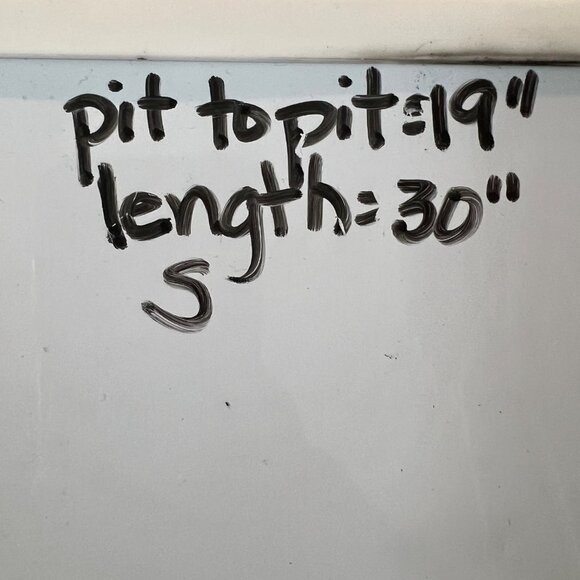 pit to pit=19"
length=30"
S